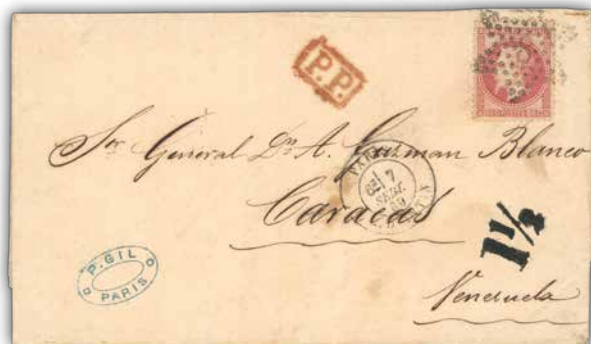 P.P.
Sor General Dn A. Guzman Blanco
PARIS
6E 7
SEPT.
69
Caracas
1½
P. GIL
PARIS
Venezuela